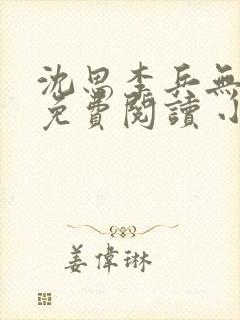 沈思李兵無
免費閱讀小
姜偉琳